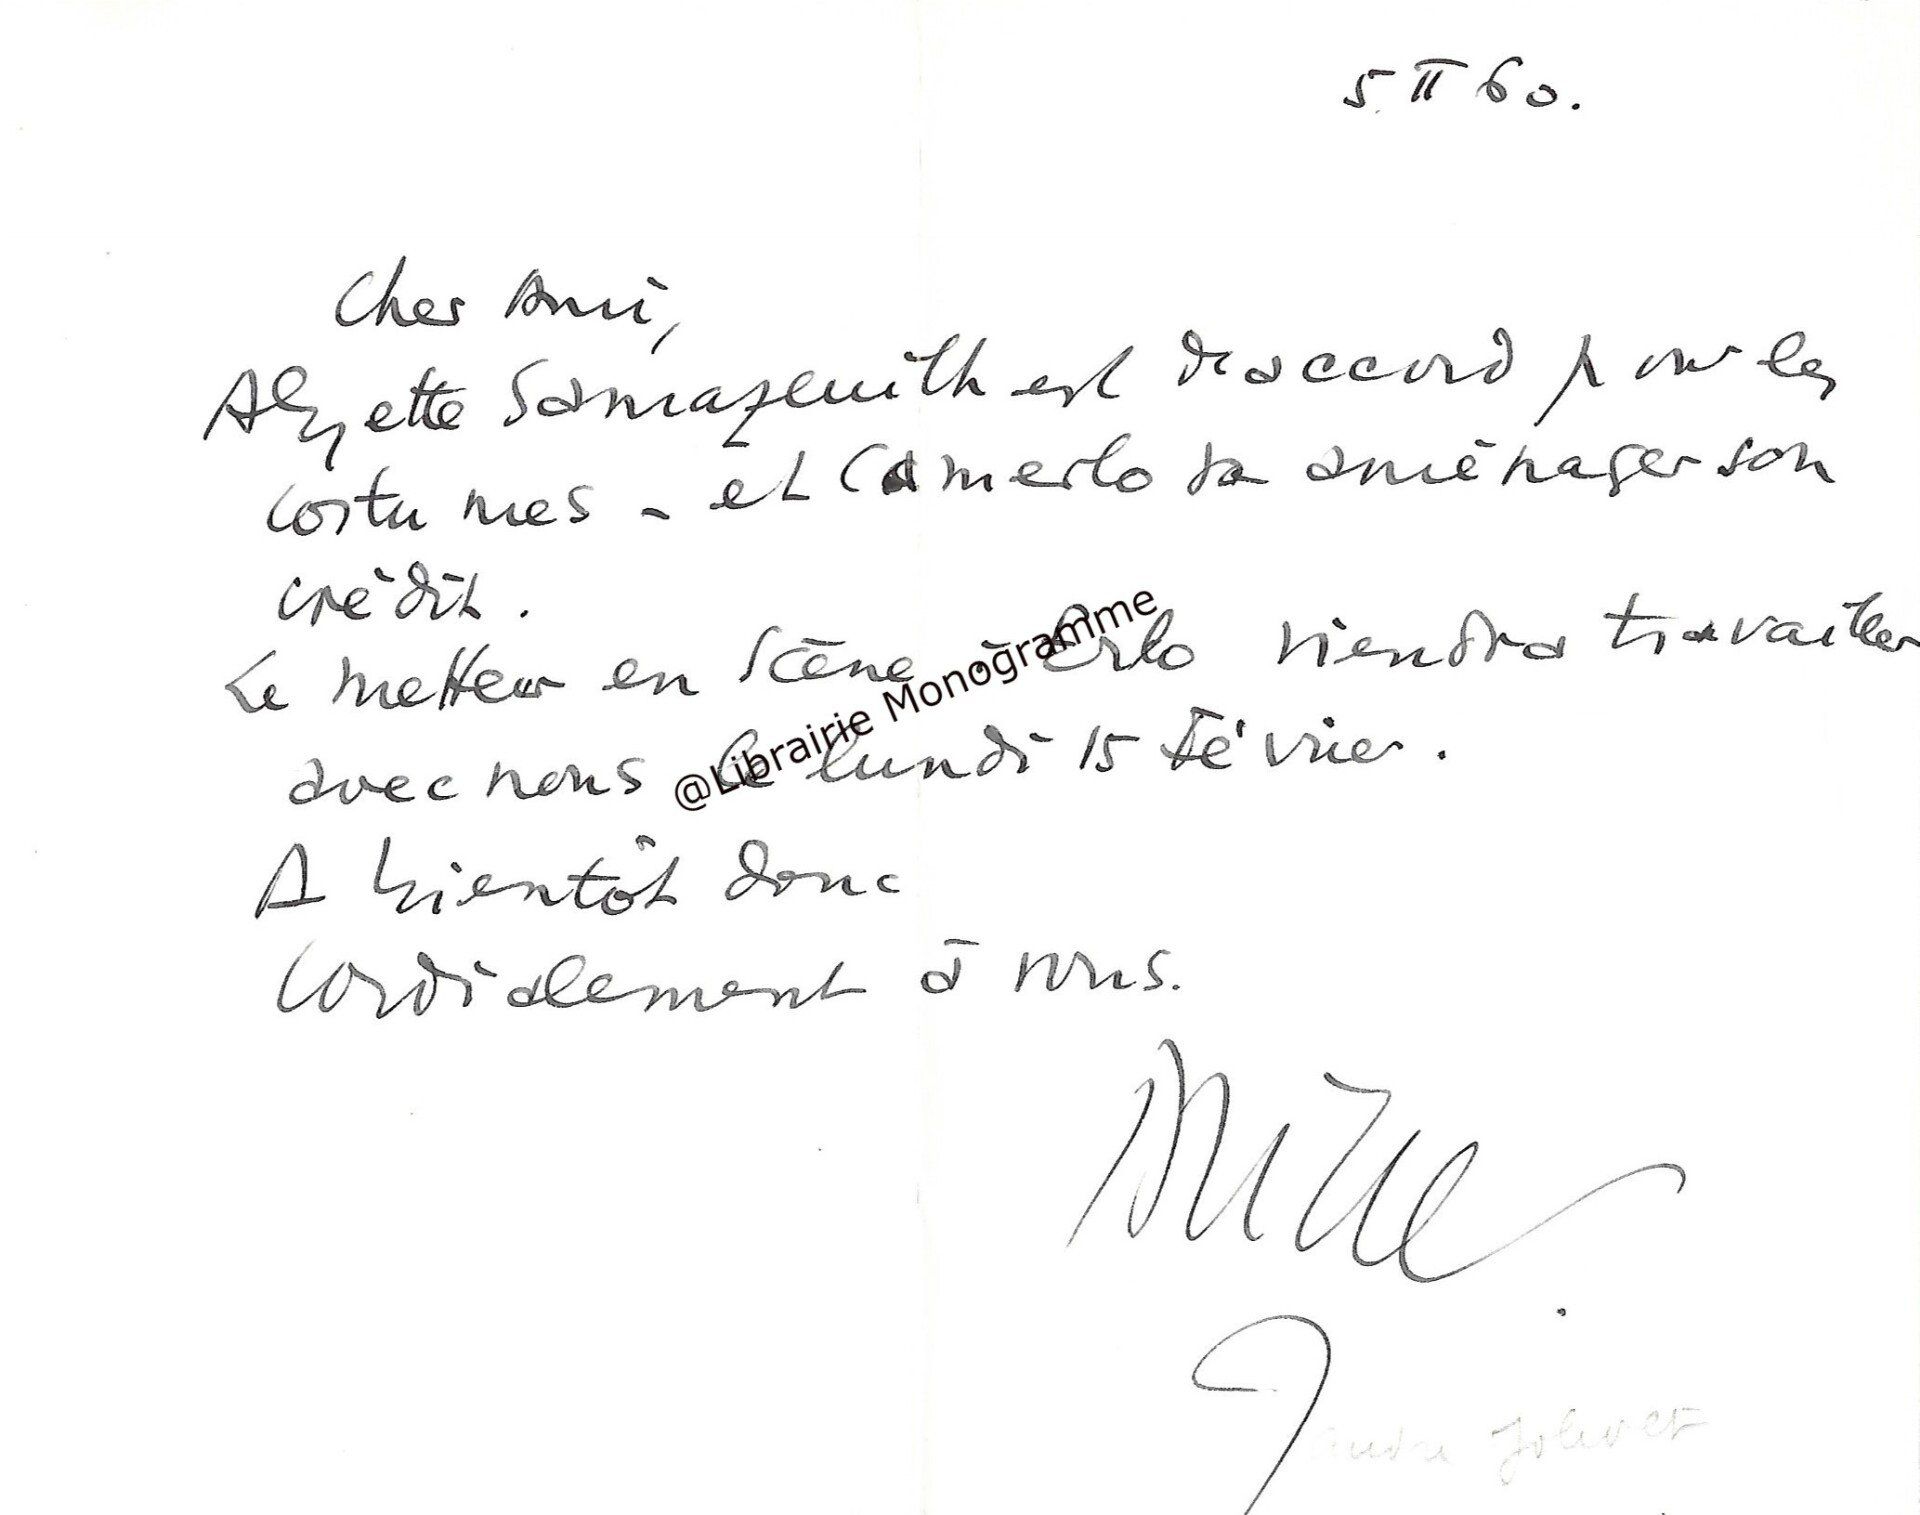 5. II 60.
Cher Ami,
Alyette Samazeuilh est d'accord pour les
costumes - et Camerlo va aménager son
crédit.
Le metteur en scène : Erlo viendra travailler
avec nous le lundi 15 février.
@Librairie Monogramme
A bientôt donc
Cordialement à vous.
André Jolivet